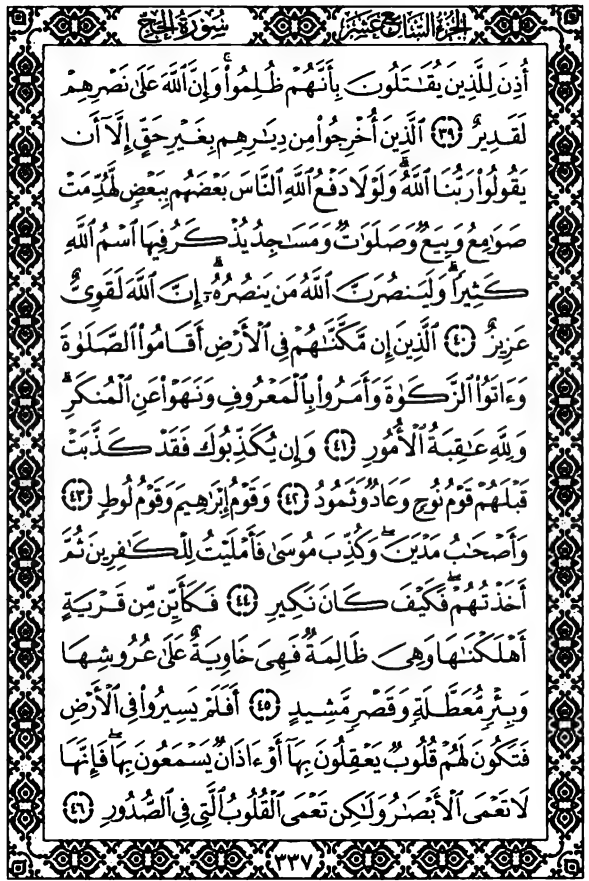 الجزء السابع عشر
سورة الحج
أُذِنَ لِلَّذِينَ يُقَٰتَلُونَ بِأَنَّهُمْ ظُلِمُوا۟ۚ وَإِنَّ ٱللَّهَ عَلَىٰ نَصْرِهِمْ
لَقَدِيرٌ ﴿٣٩﴾ ٱلَّذِينَ أُخْرِجُوا۟ مِن دِيَٰرِهِم بِغَيْرِ حَقٍّ إِلَّآ أَن
يَقُولُوا۟ رَبُّنَا ٱللَّهُۗ وَلَوْلَا دَفْعُ ٱللَّهِ ٱلنَّاسَ بَعْضَهُم بِبَعْضٍ لَّهُدِّمَتْ
صَوَٰمِعُ وَبِيَعٌ وَصَلَوَٰتٌ وَمَسَٰجِدُ يُذْكَرُ فِيهَا ٱسْمُ ٱللَّهِ
كَثِيرًاۗ وَلَيَنصُرَنَّ ٱللَّهُ مَن يَنصُرُهُۥٓۗ إِنَّ ٱللَّهَ لَقَوِىٌّ
عَزِيزٌ ﴿٤٠﴾ ٱلَّذِينَ إِن مَّكَّنَّٰهُمْ فِى ٱلْأَرْضِ أَقَامُوا۟ ٱلصَّلَوٰةَ
وَءَاتَوُا۟ ٱلزَّكَوٰةَ وَأَمَرُوا۟ بِٱلْمَعْرُوفِ وَنَهَوْا۟ عَنِ ٱلْمُنكَرِۗ
وَلِلَّهِ عَٰقِبَةُ ٱلْأُمُورِ ﴿٤١﴾ وَإِن يُكَذِّبُوكَ فَقَدْ كَذَّبَتْ
قَبْلَهُمْ قَوْمُ نُوحٍ وَعَادٌ وَثَمُودُ ﴿٤٢﴾ وَقَوْمُ إِبْرَٰهِيمَ وَقَوْمُ لُوطٍ ﴿٤٣﴾
وَأَصْحَٰبُ مَدْيَنَۖ وَكُذِّبَ مُوسَىٰ فَأَمْلَيْتُ لِلْكَٰفِرِينَ ثُمَّ
أَخَذْتُهُمْۖ فَكَيْفَ كَانَ نَكِيرِ ﴿٤٤﴾ فَكَأَيِّن مِّن قَرْيَةٍ
أَهْلَكْنَٰهَا وَهِىَ ظَالِمَةٌ فَهِىَ خَاوِيَةٌ عَلَىٰ عُرُوشِهَا
وَبِئْرٍ مُّعَطَّلَةٍ وَقَصْرٍ مَّشِيدٍ ﴿٤٥﴾ أَفَلَمْ يَسِيرُوا۟ فِى ٱلْأَرْضِ
فَتَكُونَ لَهُمْ قُلُوبٌ يَعْقِلُونَ بِهَآ أَوْ ءَاذَانٌ يَسْمَعُونَ بِهَاۖ فَإِنَّهَا
لَا تَعْمَى ٱلْأَبْصَٰرُ وَلَٰكِن تَعْمَى ٱلْقُلُوبُ ٱلَّتِى فِى ٱلصُّدُورِ ﴿٤٦﴾
٣٣٧